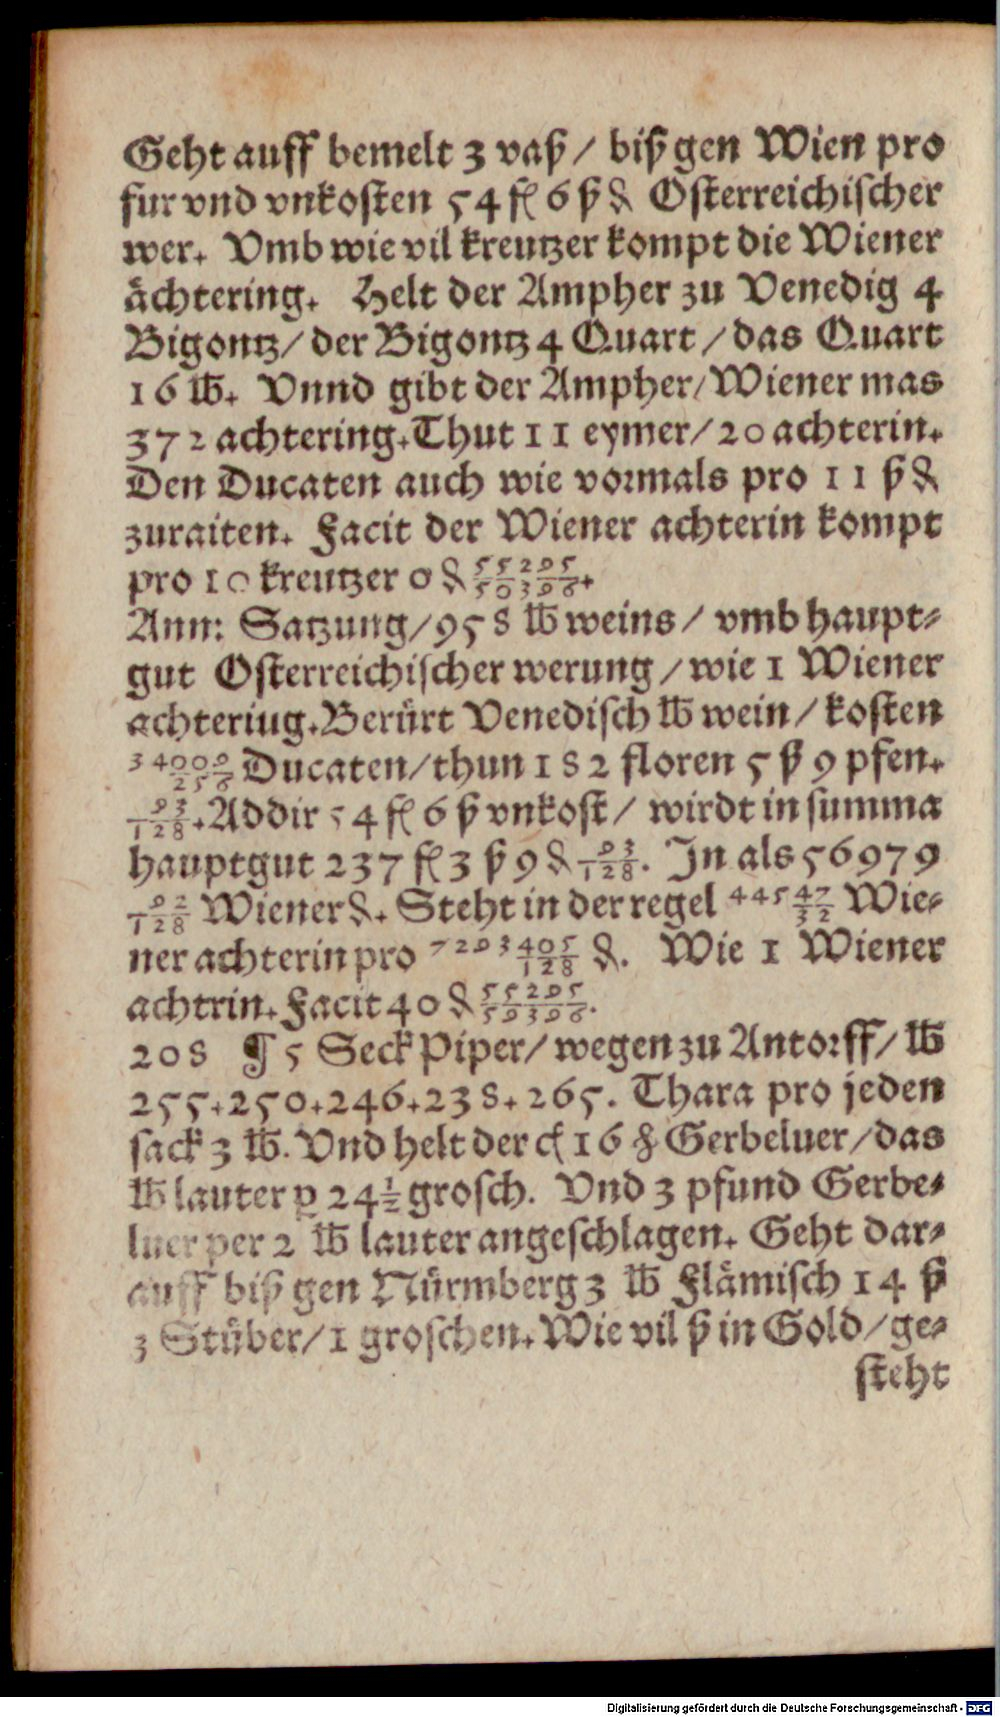 Geht auff bemelt 3 vaß / biß gen Wien pro
fur vnd vnkosten 54 fl 6 ß ₰ Osterreichischer
wer. Vmb wie vil kreutzer kompt die Wiener
ächtering. Helt der Ampher zu Venedig 4
Bigontz / der Bigontz 4 Quart / das Quart
16 ℔. Vnnd gibt der Ampher / Wiener mas
372 achtering. Thut 11 eymer / 20 achterin.
Den Ducaten auch wie vormals pro 11 ß ₰
zuraiten. Facit der Wiener achterin kompt
pro 10 kreutzer 0 ₰
Ann: Satzung / 958 ℔ weins / vmb haupt⸗
gut Osterreichischer werung / wie 1 Wiener
achteriug. Berürt Venedisch ℔ wein / kosten
Ducaten / thun 182 floren 5 ß 9 pfen.
93/128. Addir 54 fl 6 ß vnkost / wirdt in summa
hauptgut 237 fl 3 ß 9 ₰ 93/128. In als 56979
Wiener ₰. Steht in der regel 445 47/32 Wie⸗
ner achterin pro ₰. Wie 1 Wiener
achtrin. Facit 40 ₰
208 ¶ 5 Seck Piper / wegen zu Antorff / ℔
255. 250. 246. 238. 265. Thara pro jeden
sack 3 ℔. Vnd helt der 16 Gerbeluer / das
℔ lauter p 24 1/2 grosch. Vnd 3 pfund Gerbe⸗
luer per 2 ℔ lauter angeschlagen. Geht dar⸗
auff biß gen Nürmberg 3 ℔ Flämisch 14 ß
3 Stüber / 1 groschen. Wie vil ß in Gold / ge⸗
steht
Digitalisierung gefördert durch die Deutsche Forschungsgemeinschaft - DFG